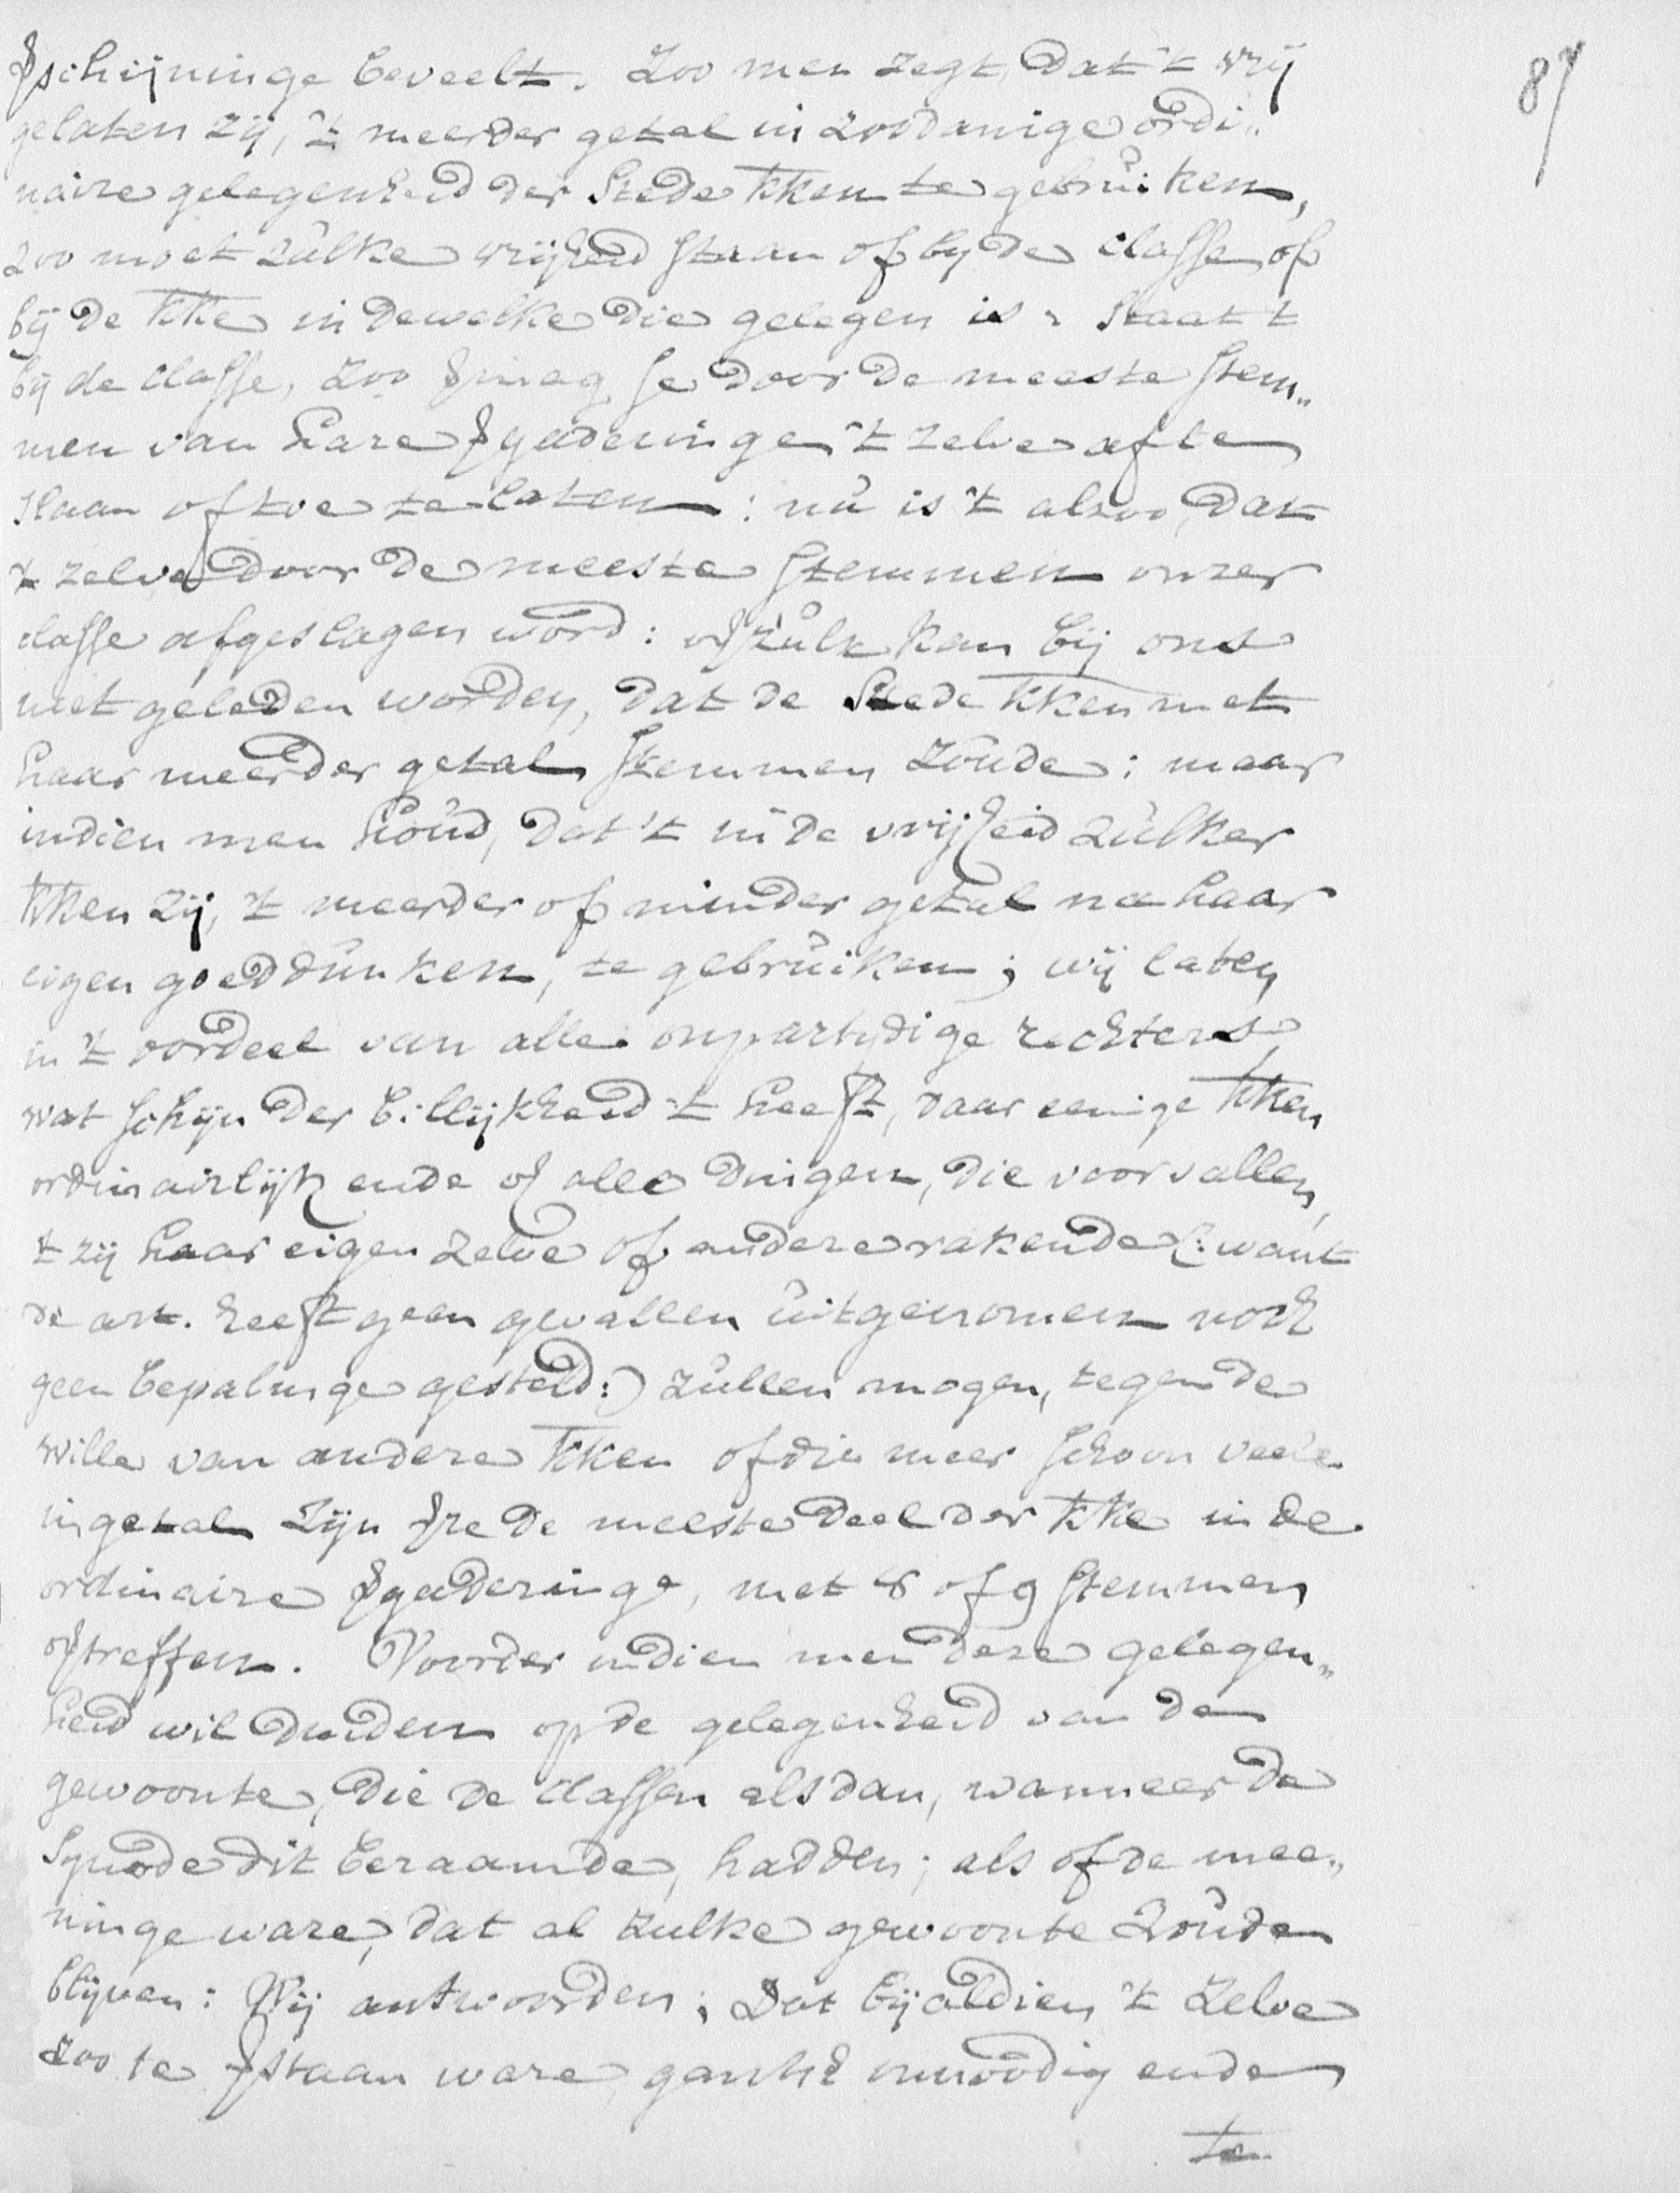 87
Vschijninge beveelt. Zoo men zegt, dat 't vrij
gelaten zij, 't meerder getal in zoodanige ordi„
naire gelegenheid der Stede kken te gebrúiken,
zoo moet zúlke vrijheid staan of bij de classe, of
bij de kke in dewelke die gelegen is. Staat t
bij de classe, zoo Vmag se door de meeste stem„
men van hare Vgaderinge 't zelve af te
slaan of toe te laten: nú is 't alzoo, dat
't zelve door de meeste stemmen onzer
classe afgeslagen word: ofzúlk kan bij ons
niet geleden worden, dat de Stede kken met
haar meerder getal stemmen zoúde: maar
indien men hoúd, dat 't in de vrijheid zúlker
kken zij, 't meerder of minder getal na haar
eigen goeddúnken, te gebrúiken; wij laten
in 't oordeel van alle onpartydige rechters,
wat schijn der billijkheid 't heeft, daar eenige kken
ordinairlijk ende of alle dingen, die voorvallen,
't zij haar eigen zelve of andere rakende (: want
de art. heeft geen gevallen úitgenomen noch
geen bepalinge gesteld:) zúllen mogen, tegen de
wille van andere kken of die meer schoon veele
in getal zijn Vre de meeste deel der kke in de
ordinaire Vgaderinge, met 8 of 9 stemmen
oftreffen. Voorder indien men deze gelegen„
heid wil duiden op de gelegenheid van de
gewoonte, die de classen alsdan, wanneer de
Synode dit beraamde, hadden; als of de mee„
ninge ware, dat al zulke gewoonte zoúde
blijven: Wij antwoorden; Dat bijaldien 't zelve
zoo te Vstaan ware, gansch onnoodig ende
te